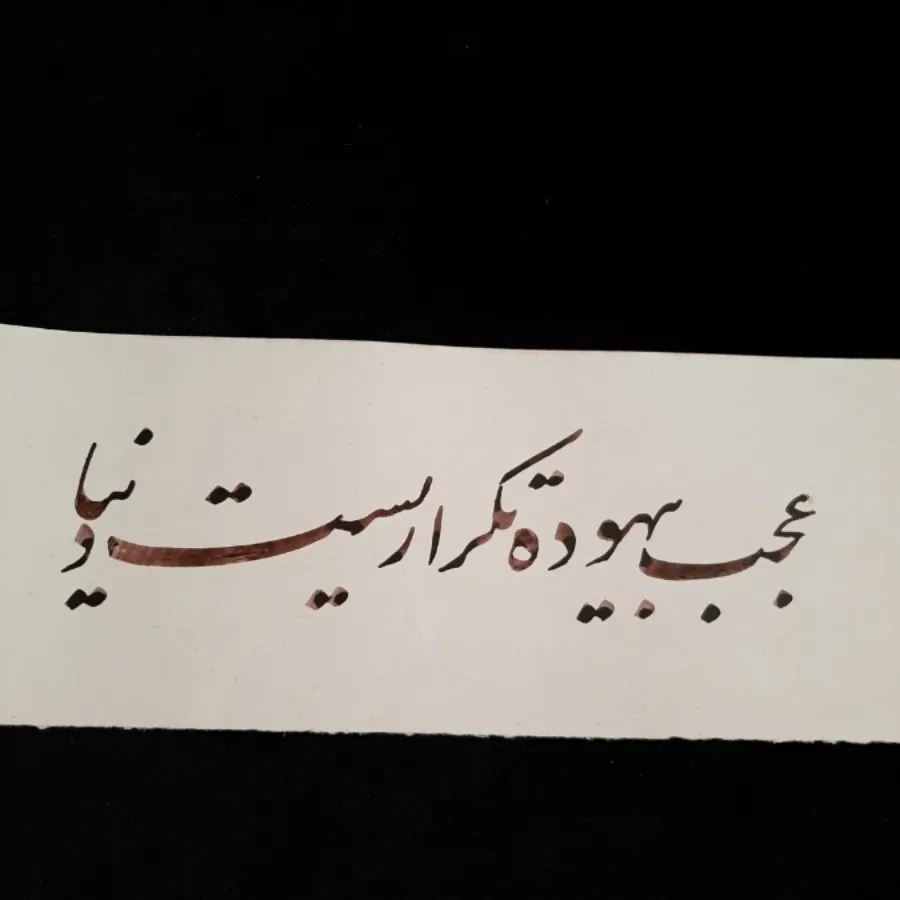 عجب بیهوده تکراریست دنیا